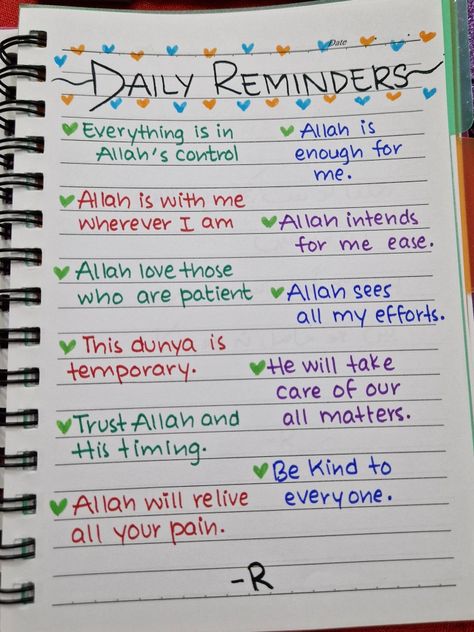 Date
DAILY REMINDERS
Everything is in
Allah's control
Allah is with me
wherever I am
Allah love those
who are patient
This dunya is
temporary.
Trust Allah and
His timing.
Allah will relive
all your pain.
Allah is
enough for
me.
Allah intends
for me ease.
Allah sees
all my efforts.
He will take
care of our
all matters.
Be Kind to
everyone.
-R